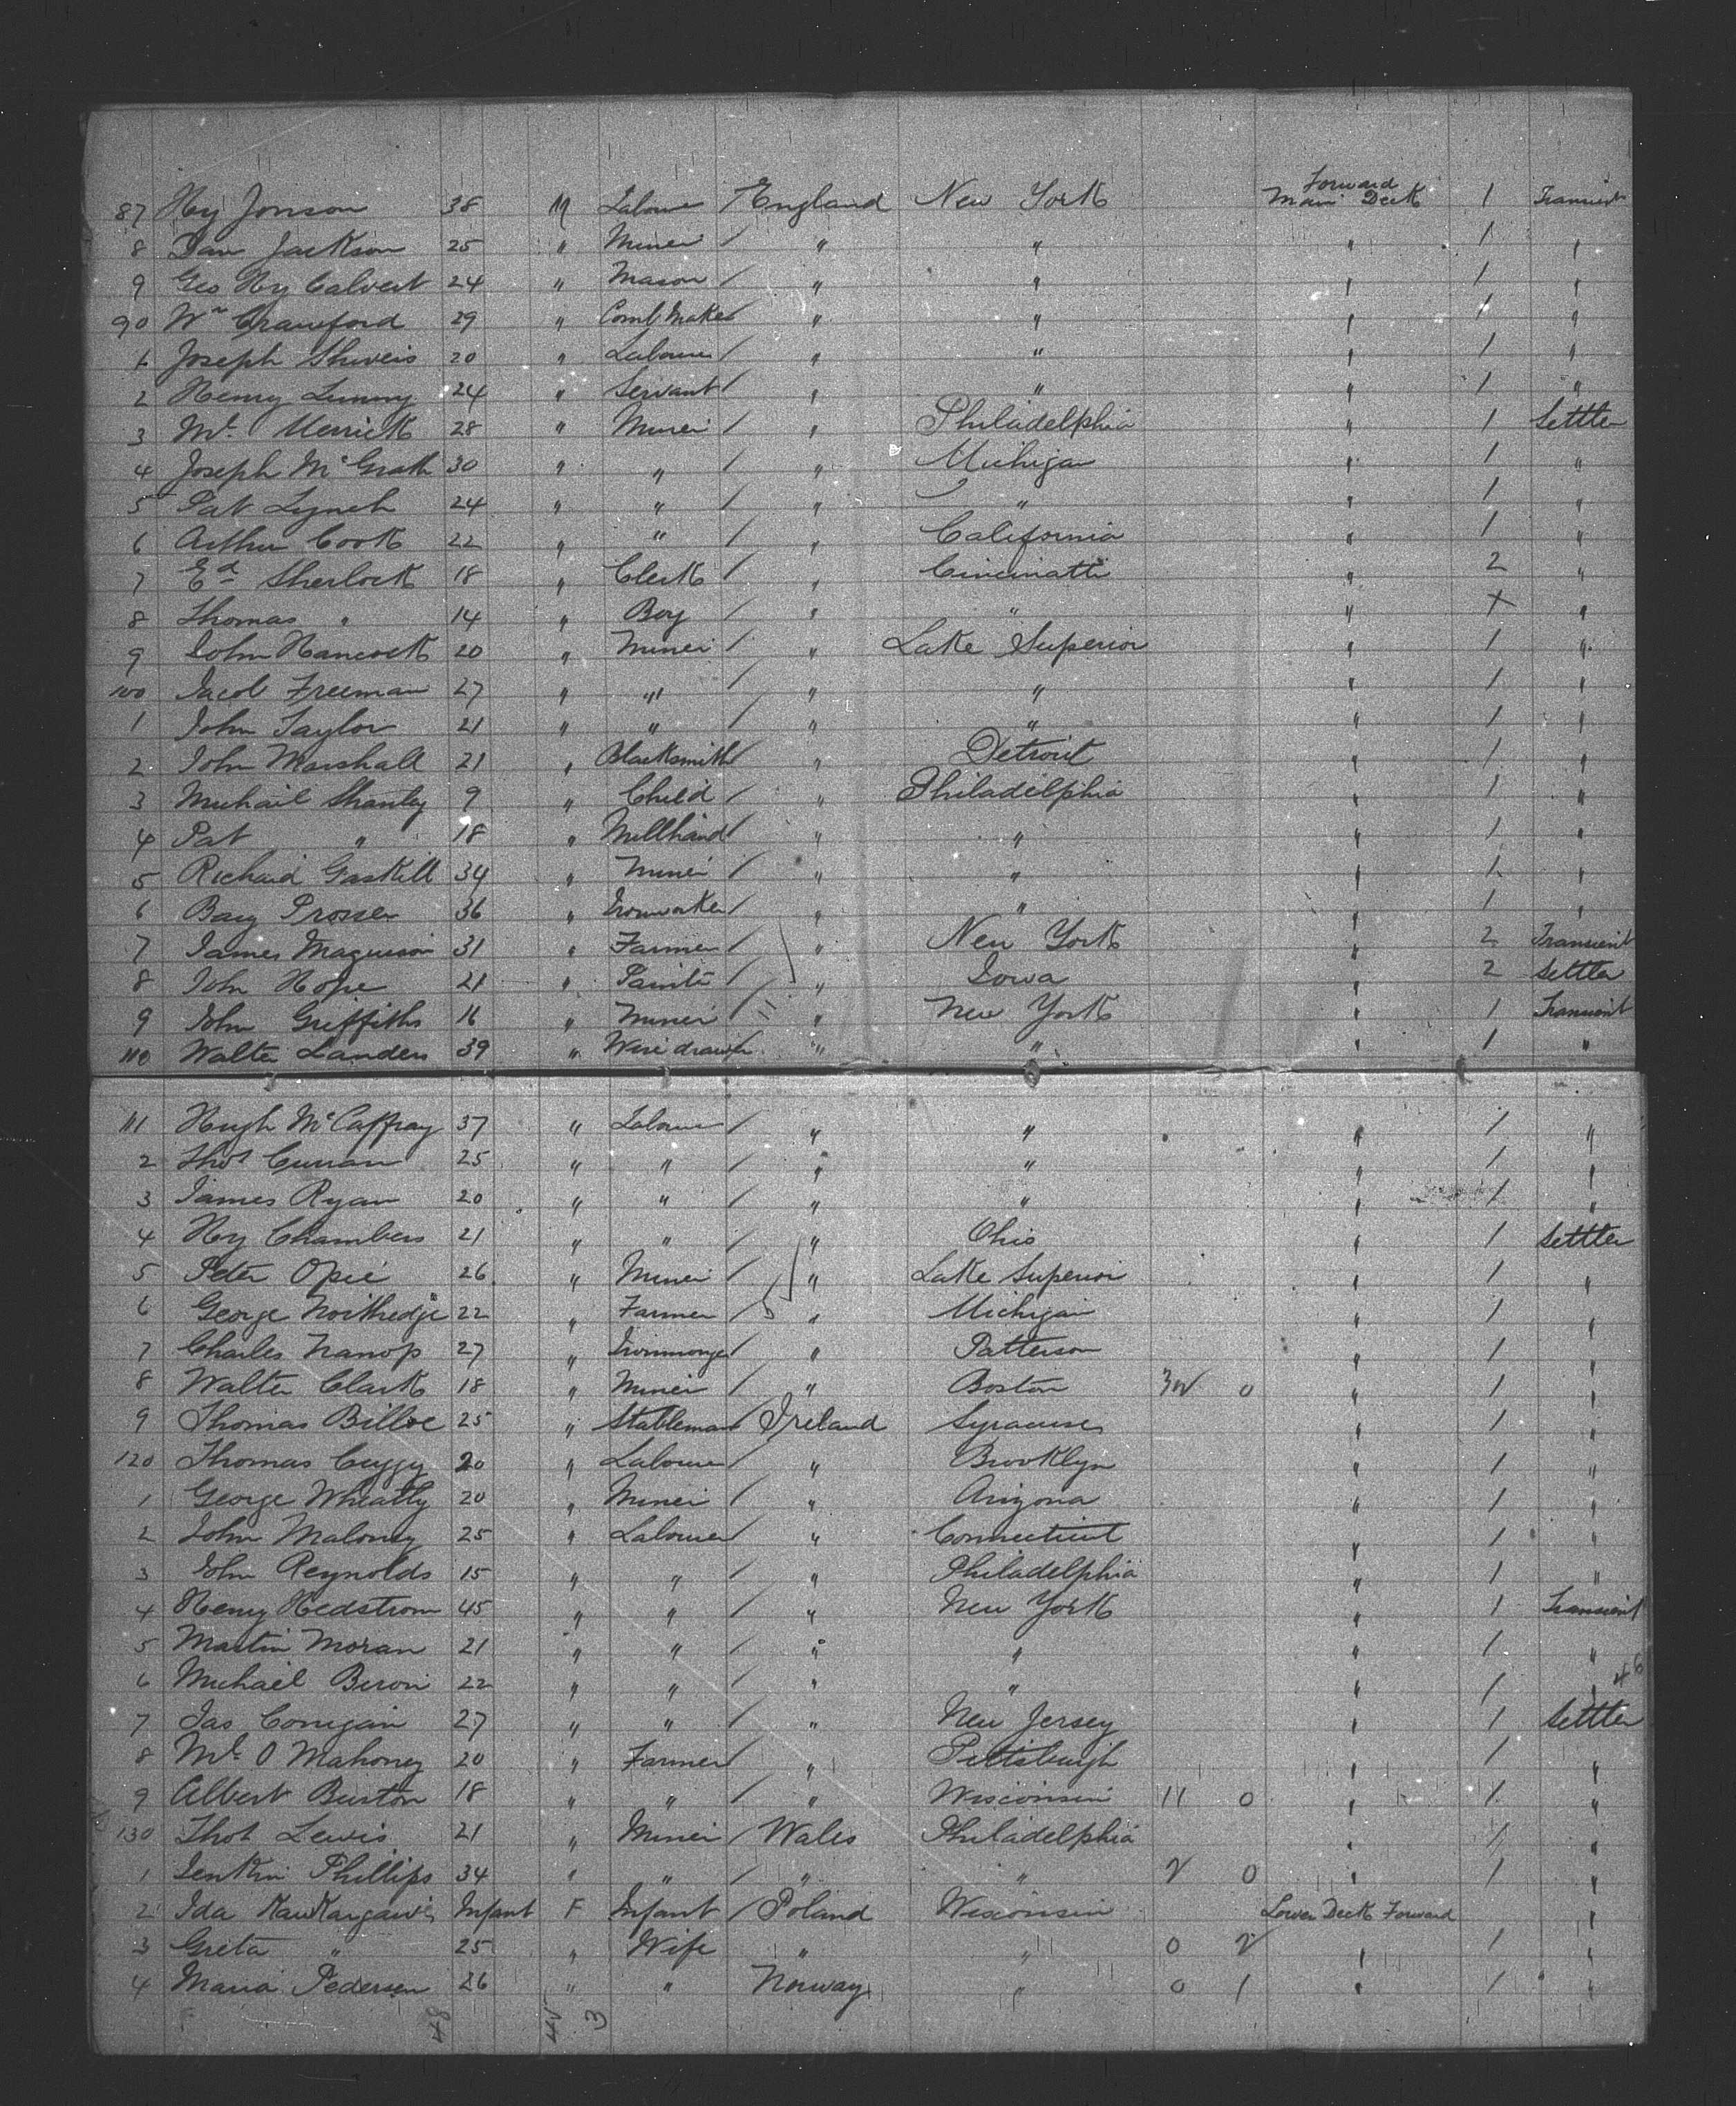 87 Hy Jonson 38 M Labourer / England New York Forward Main Deck 1 Transient
8 Dan Jackson 25 " Miner / " " " 1 "
9 Geo Hy Calvert 24 " Mason / " " " 1 "
90 Wm Crawford 29 " Comb Maker / " " " 1 "
1 Joseph 20 " Labourer / " " " 1 "
2 Henry Lunny 24 " Servant / " " " 1 "
3 Ml. Merrick 28 " Miner / " Philadelphia " 1 Settler
4 Joseph McGrath 30 " " / " Michigan " 1 "
5 Pat Lynch 24 " " / " " " 1 "
6 Arthur Cook 22 " " / " California " 1 "
7 Ed Sherlock 18 " Clerk / " Cincinatti " 2 "
8 Thomas " 14 " Boy / " " " X "
9 John Hancock 20 " Miner / " Lake Superior " 1 "
100 Jacob Freeman 27 " " / " " " 1 "
1 John Taylor 21 " " / " " " 1 "
2 John Marshall 21 " Blacksmith / " Detroit " 1 "
3 Michail Shanley 9 " Child / " Philadelphia " 1 "
4 Pat " 18 " Millhand / " " " 1 "
5 Richard Gaskill 34 " Miner / " " " 1 "
6 Prosser 36 " Ironworker / " " " 1 "
7 James 31 " Farmer / " New York " 2 Transient
8 John Hope 21 " Painter / " Iowa " 2 Settler
9 John Griffiths 16 " Miner / " New York " 1 Transient
110 Walter Landers 39 " Wire drawer " " " 1 "
111 Hugh McCaffray 37 " Labourer / " " " 1 "
2 Thos Curran 25 " " / " " " 1 "
3 James Ryan 20 " " / " " " 1 "
4 Hy Chambers 21 " " / " Ohio " 1 Settler
5 Peter Opie 26 " Miner / " Lake Superior " 1 "
6 George Northedje 22 " Farmer / " Michigan " 1 "
7 Charles 27 " Ironmonger / " Patterson " 1 "
8 Walter Clark 18 " Miner / " Boston 0 " 1 "
9 Thomas Billoe 25 " Stableman / Ireland Syracuse " 1 "
120 Thomas 20 " Labourer / " Brooklyn " 1 "
1 George Wheatly 20 " Miner / " Arizona " 1 "
2 John Maloney 25 " Labourer / " Connecticut " 1 "
3 John Reynolds 15 " " " Philadelphia " 1 "
4 Henry Hedstrom 45 " " / " New York " 1 Transient
5 Martin Moran 21 " " / " " " 1 "
6 Michael 22 " " / " " " 1 " 46
7 Jas Corrigan 27 " " / " New Jersey " 1 Settler
8 Ml. O Mahoney 20 " Farmer / " Pittsburgh " 1 "
9 Albert Burton 18 " " / " Wisconsin 11 0 " 1 "
130 Thos Lewis 21 " Miner / Wales Philadelphia " 1 "
1 Jenkin Phillips 34 " " / " " 2 0 " 1 "
2 Ida Infant F Infant / Poland Wisconsin Lower Deck Forward "
3 Greta " 25 " Wife " " 0 2 " 1 "
4 Maria Pedersen 26 " " Norway " 0 1 " 1 "
48 3